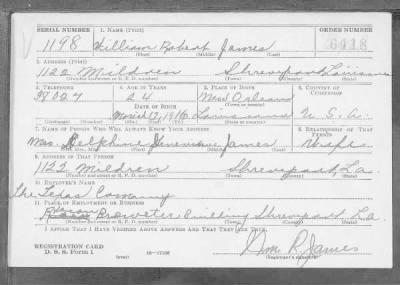 SERIAL NUMBER 1. NAME (Print) ORDER NUMBER
1198 William Robert James
(First) (Middle) (Last)
2. ADDRESS (Print)
1122 Mildren Shreveport Louisiana
(Number and street or R. F. D. number) (Town) (County) (State)
3. TELEPHONE 4. AGE IN YEARS 5. PLACE OF BIRTH 6. COUNTRY OF CITIZENSHIP
24 New Orleans
DATE OF BIRTH (Town or county)
1916 Louisiana U. S. A.
(Exchange) (Number) (Mo.) (Day) (Yr.) (State or country)
7. NAME OF PERSON WHO WILL ALWAYS KNOW YOUR ADDRESS 8. RELATIONSHIP OF THAT PERSON
Mrs. Delphine Genevieve James Wife
(Mr., Mrs., Miss) (First) (Middle) (Last)
9. ADDRESS OF THAT PERSON
1122 Mildren Shreveport La.
(Number and street or R. F. D. number) (Town) (County) (State)
10. EMPLOYER'S NAME
The Texas Company
11. PLACE OF EMPLOYMENT OR BUSINESS
Brewster Building Shreveport La.
(Number and street or R. F. D. number) (Town) (County) (State)
I AFFIRM THAT I HAVE VERIFIED ABOVE ANSWERS AND THAT THEY ARE TRUE.
REGISTRATION CARD
D. S. S. Form 1 (over) Wm. R. James
(Registrant's signature)